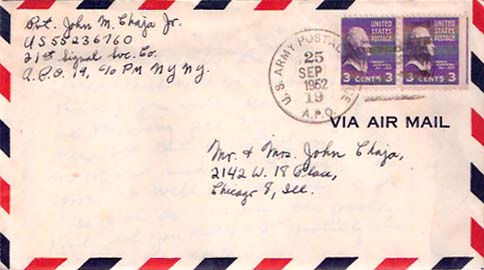 Pvt. John M. Chaja Jr.
US 55236760
21st Signal Svc. Co.
A.P.O. 19, c/o PM NY NY.
U.S. ARMY POSTAL
A.P.O.
25
SEP
1952
19
UNITED STATES
3 CENTS 3
UNITED STATES
3 CENTS 3
VIA AIR MAIL
Mr. & Mrs. John Chaja,
2142 W. 18 Place,
Chicago 8, Ill.